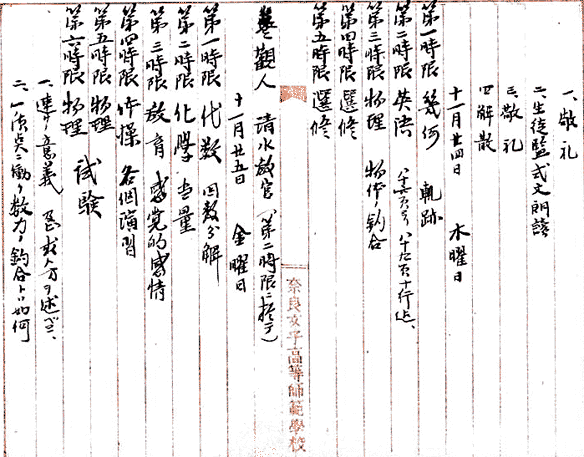 一、敬礼
二、生徒監式文朗読
三、敬礼
四、解散
十一月廿四日　水曜日
第一時限 幾何　軌跡
第二時限 英語
第三時限 物理　物体ノ釣合
第四時限 選修
第五時限 選修
参観人　清水教官（第二時限ニ於テ）
奈良女子高等師範學校
十一月廿五日　金曜日
第一時限 代数　因数分解
第二時限 化學　当量
第三時限 教育　感覚的感情
第四時限 体操　各個演習
第五時限 物理
第六時限 物理　試験
一、運動ノ意義　及
二、一質点ニ働ク数力ノ釣合トハ如何